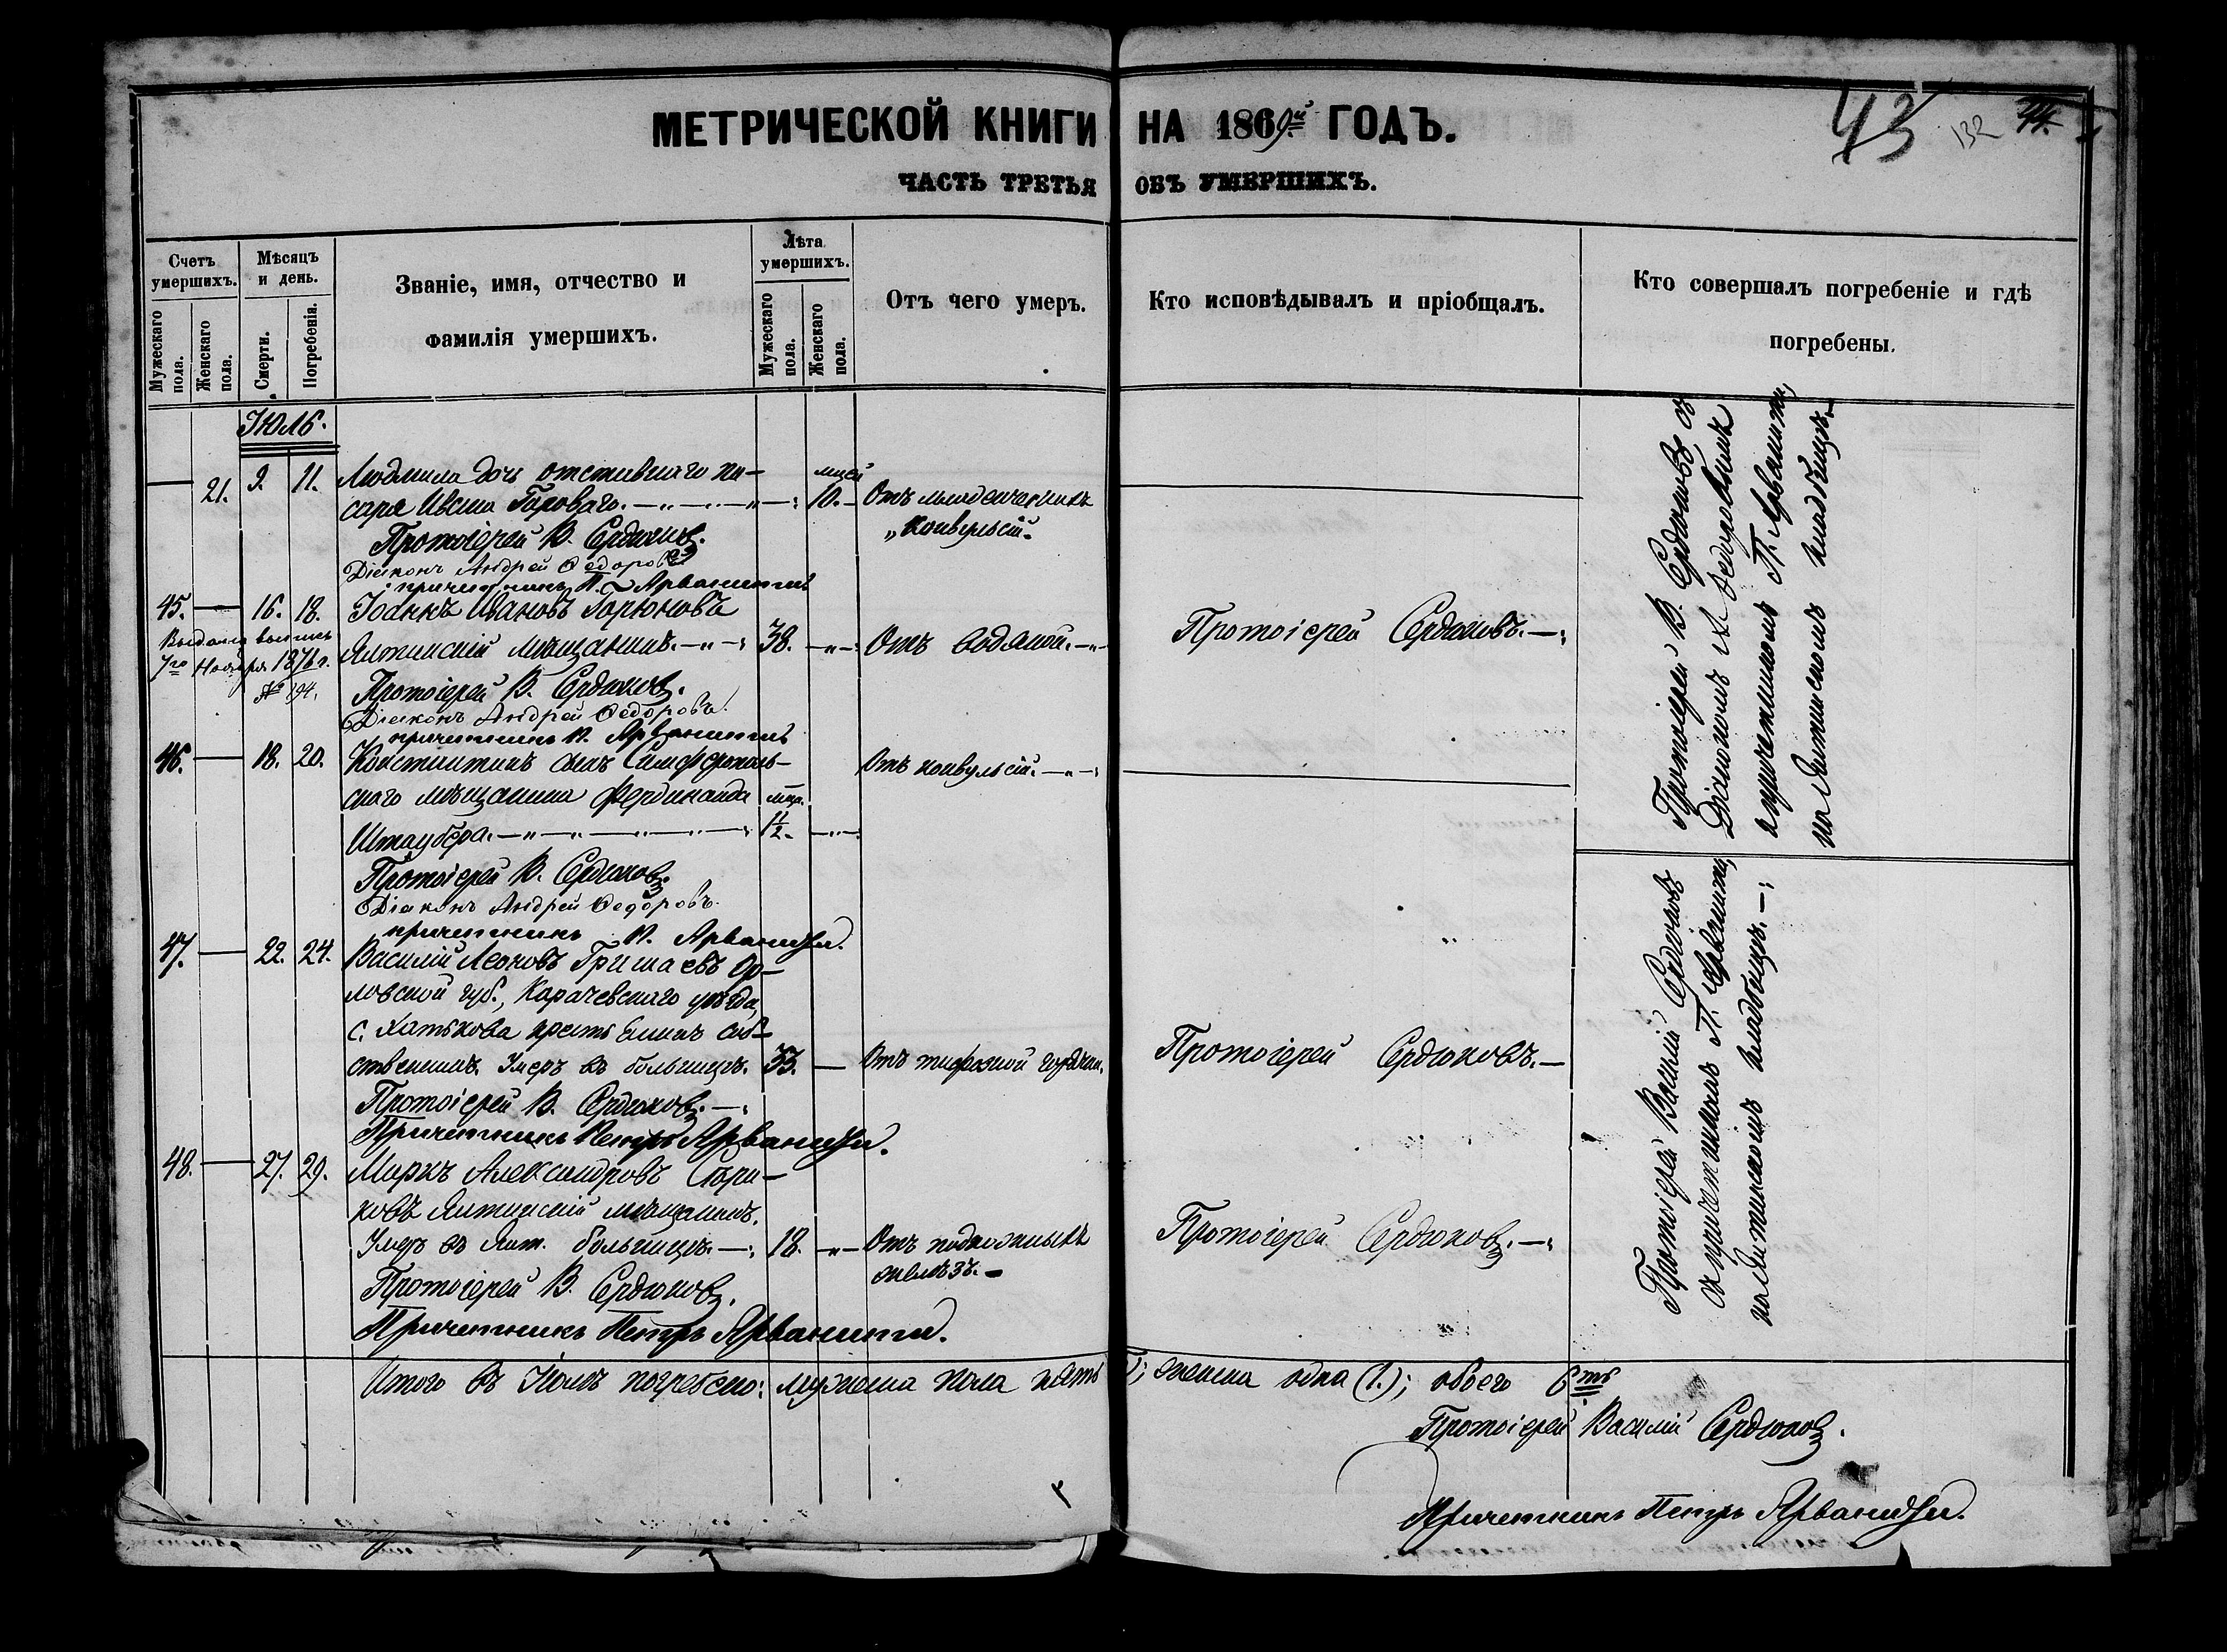 МЕТРИЧЕСКОЙ КНИГИ НА 1869й ГОДЪ.
ЧАСТЬ ТРЕТЬЯ ОБЪ УМЕРШИХЪ.
43 132 44.
Счетъ умершихъ.
Мужескаго пола.
Женскаго пола.
Мѣсяцъ и день.
Смерти.
Погребенія.
Званіе, имя, отчество и
фамилія умершихъ.
Лѣта умершихъ.
Мужескаго пола.
Женскаго пола.
Отъ чего умеръ.
Кто исповѣдывалъ и пріобщалъ.
Кто совершалъ погребеніе и гдѣ
погребены.
Іюль.
— 21. 9. 11. Людмила дочь отставнаго пи-
саря Ивана Гороваго. 10. Отъ младенческихъ
конвульсій.
Протоіерей В. Сердюковъ.
Діаконъ Андрей Ѳедоровъ
причетникъ П. Арванити
45. — 16. 18. Іоаннъ Ивановъ Горюновъ
Ялтинскій мѣщанинъ. 38. Отъ водяной. Протоіерей Сердюковъ.
Выдана выпись
7го Ноября 1876 г.
№ 194.
Протоіерей В. Сердюковъ.
Діаконъ Андрей Ѳедоровъ.
причетникъ П. Арванити
46. — 18. 20. Константинъ сынъ Симферополь-
скаго мѣщанина Фердинанда
Штаубера. 1½. Отъ конвульсій.
Протоіерей В. Сердюковъ.
Діаконъ Андрей Ѳедоровъ.
причетникъ П. Арваниди.
Протоіерей В. Сердюковъ съ
Діакономъ А. Ѳедоровымъ
и причетникомъ П. Арванити,
на Ялтинскомъ кладбищѣ.
47. — 22. 24. Василій Леоновъ Гришаевъ Ор-
ловской губ., Карачевскаго уѣзда,
с. Хатькова крестьянинъ соб-
ственникъ. Умеръ въ больницѣ. 33. — Отъ тифозной горячки. Протоіерей Сердюковъ.
Протоіерей В. Сердюковъ.
Причетникъ Петръ Арваниди.
48. — 27. 29. Маркъ Александровъ Стари-
ковъ Ялтинскій мѣщанинъ.
Умеръ въ Ялт. больницѣ. 18. Отъ подкожныхъ
желѣзъ. Протоіерей Сердюковъ.
Протоіерей В. Сердюковъ.
Причетникъ Петръ Арванити.
Протоіерей Василій Сердюковъ
съ причетникомъ П. Арванити,
на Ялтинскомъ кладбищѣ.
Итого въ Іюлѣ погребено: мужеска пола пять; женска одна (1.); обоего 6ть
Протоіерей Василій Сердюковъ.
Причетникъ Петръ Арваниди.